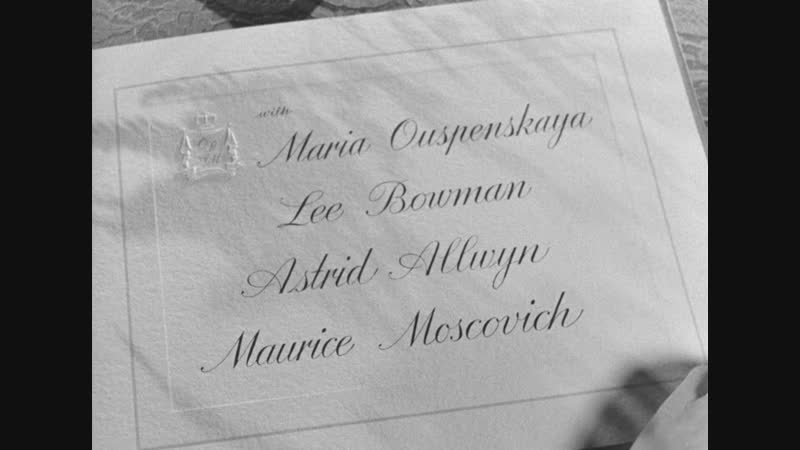 with
Maria Ouspenskaya
Lee Bowman
Astrid Allwyn
Maurice Moscovich